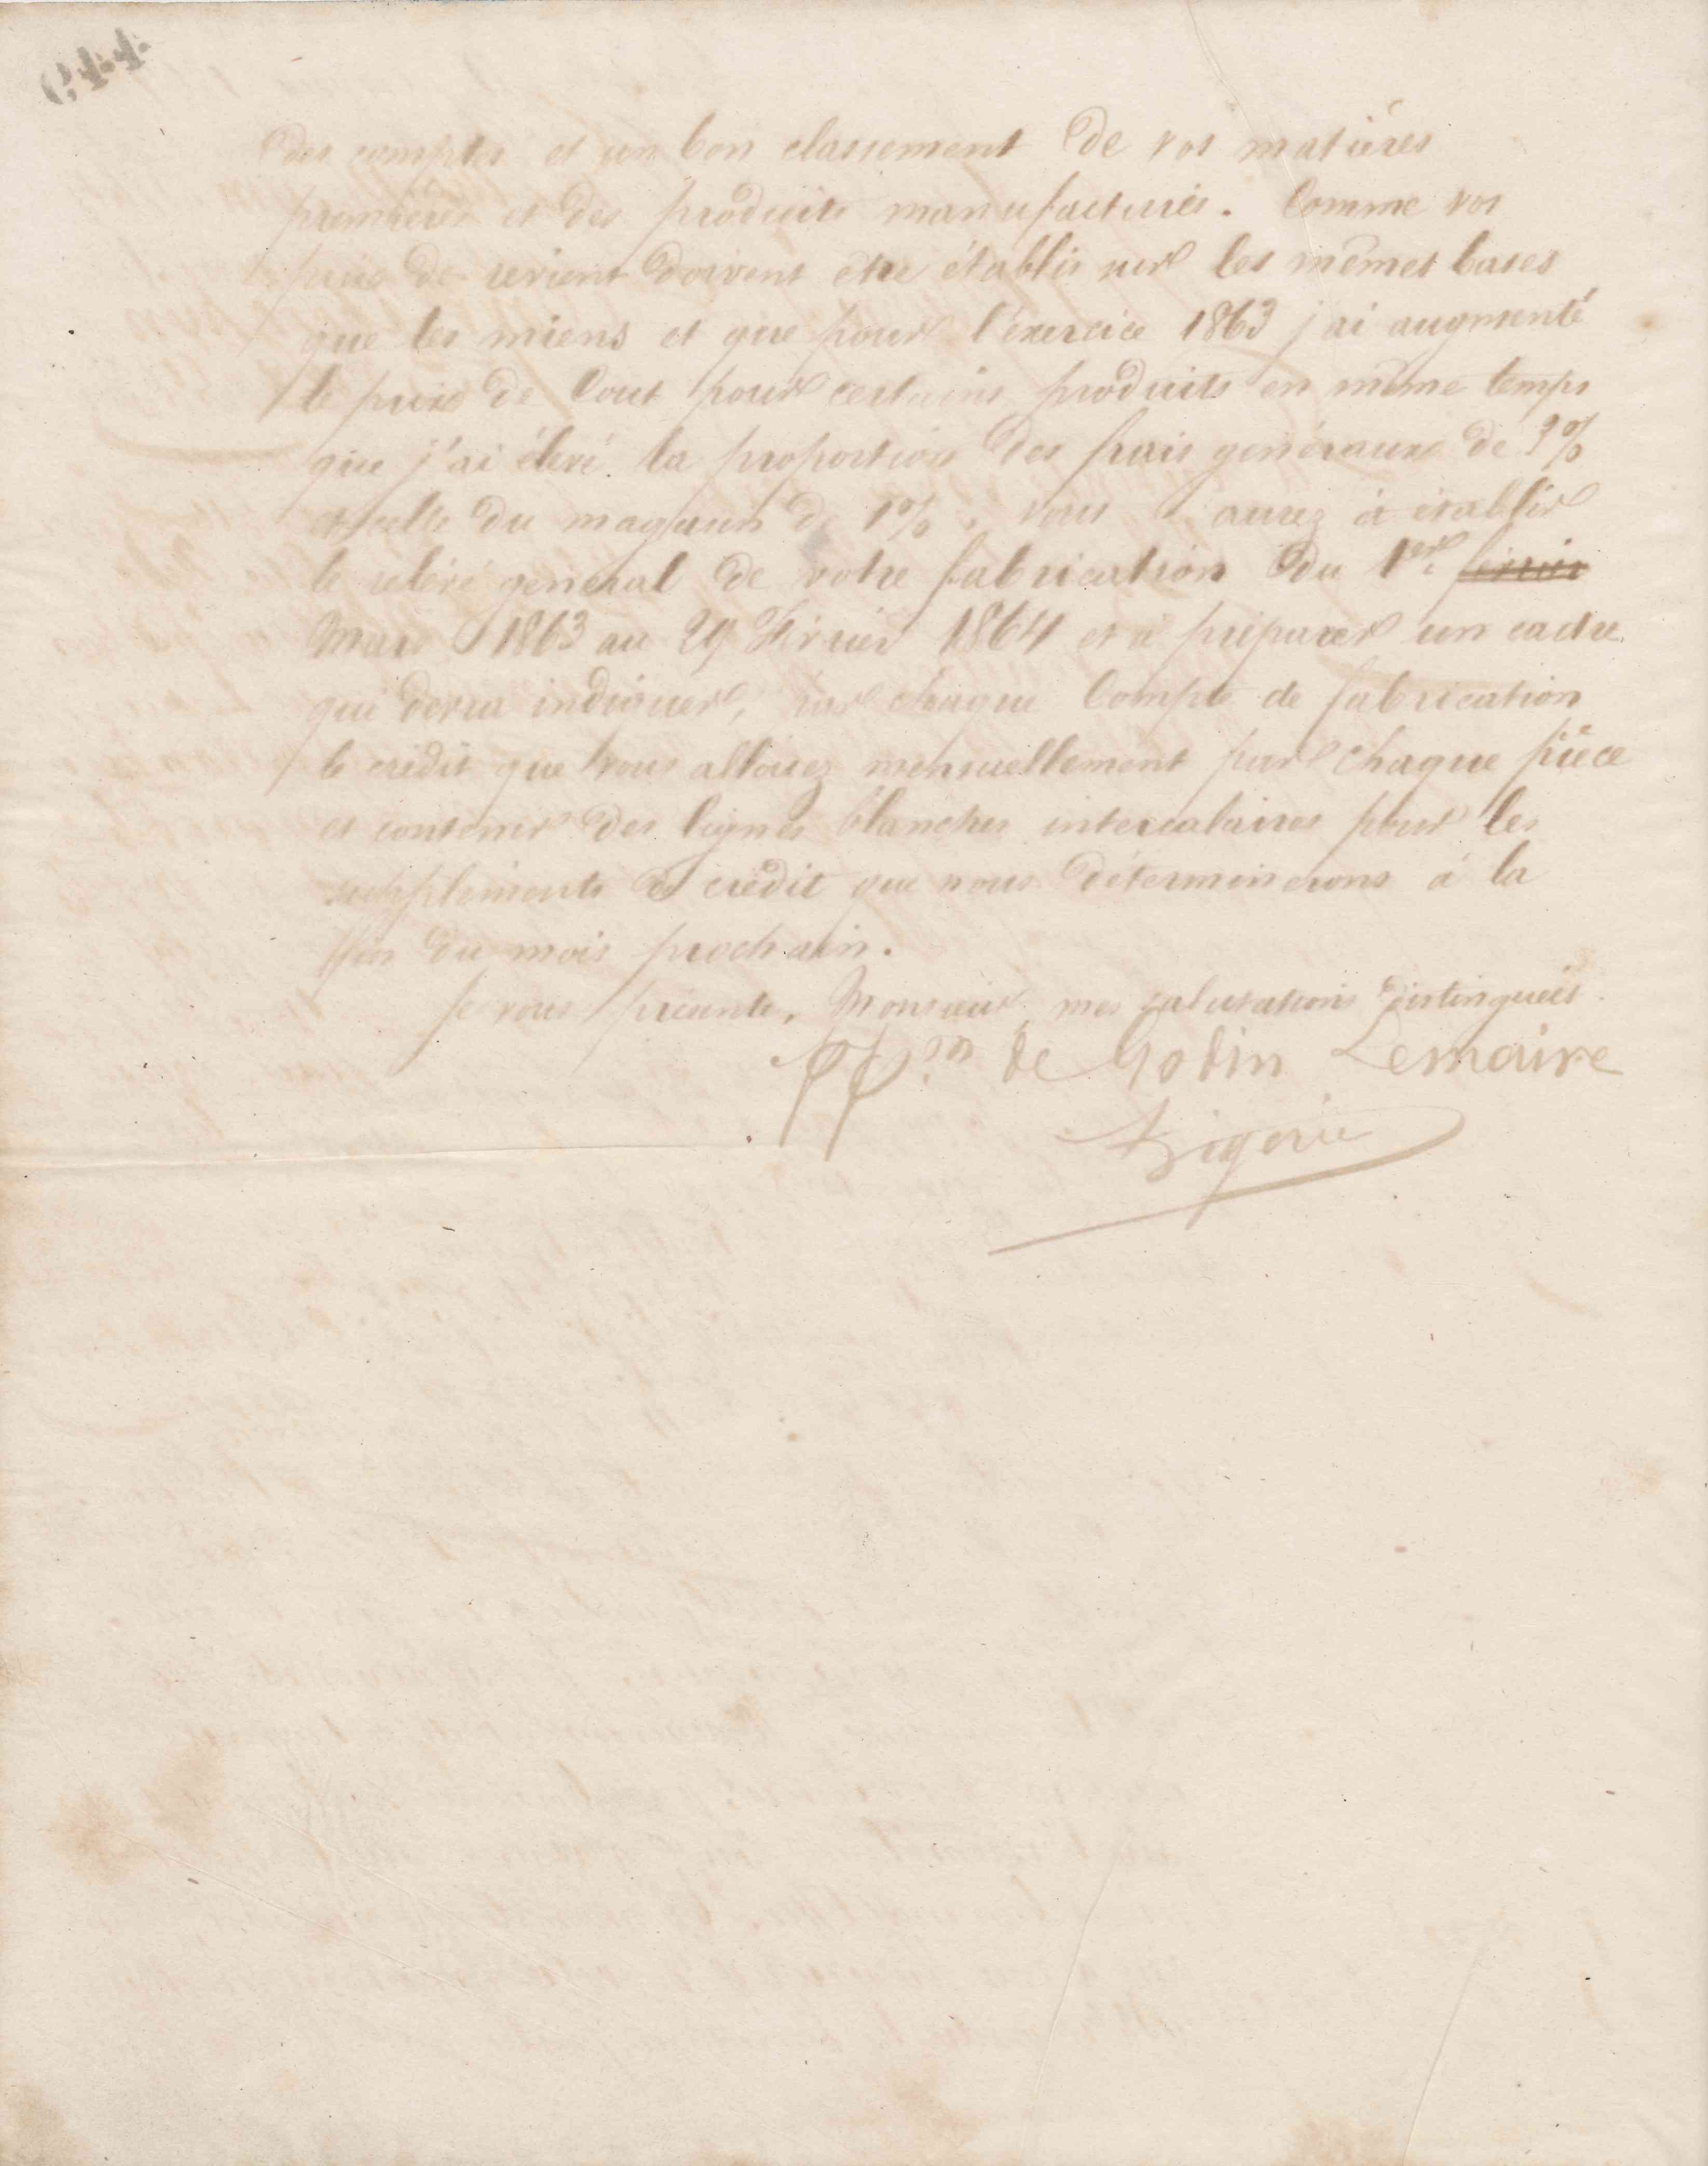 des comptes et un bon classement de vos matières
premières et des produits manufacturés. Comme vos
prix de revient doivent être établis sur les mêmes bases
que les miens et que pour l'exercice 1863 j'ai augmenté
le prix de Cout pour certains produits en même temps
que j'ai élevé la proportion des frais généraux de
et celle du magasin de 1%, vous aurez à établir
le relevé général de votre fabrication du 1er février
Mars 1863 au 29 Février 1864 et à préparer un cadre
qui devra indiquer, par chaque Compte de fabrication
le crédit que vous allouez mensuellement par chaque pièce
et contenir des lignes blanches intercalaires pour les
suppléments de crédit que nous déterminerons à la
fin du mois prochain.
Je vous présente, Monsieur, mes salutations distinguées.
de Godin Lemaire